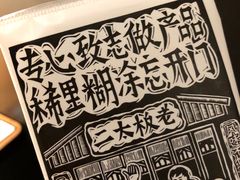 专心致志做产品
稀里糊涂忘开门
二大板老